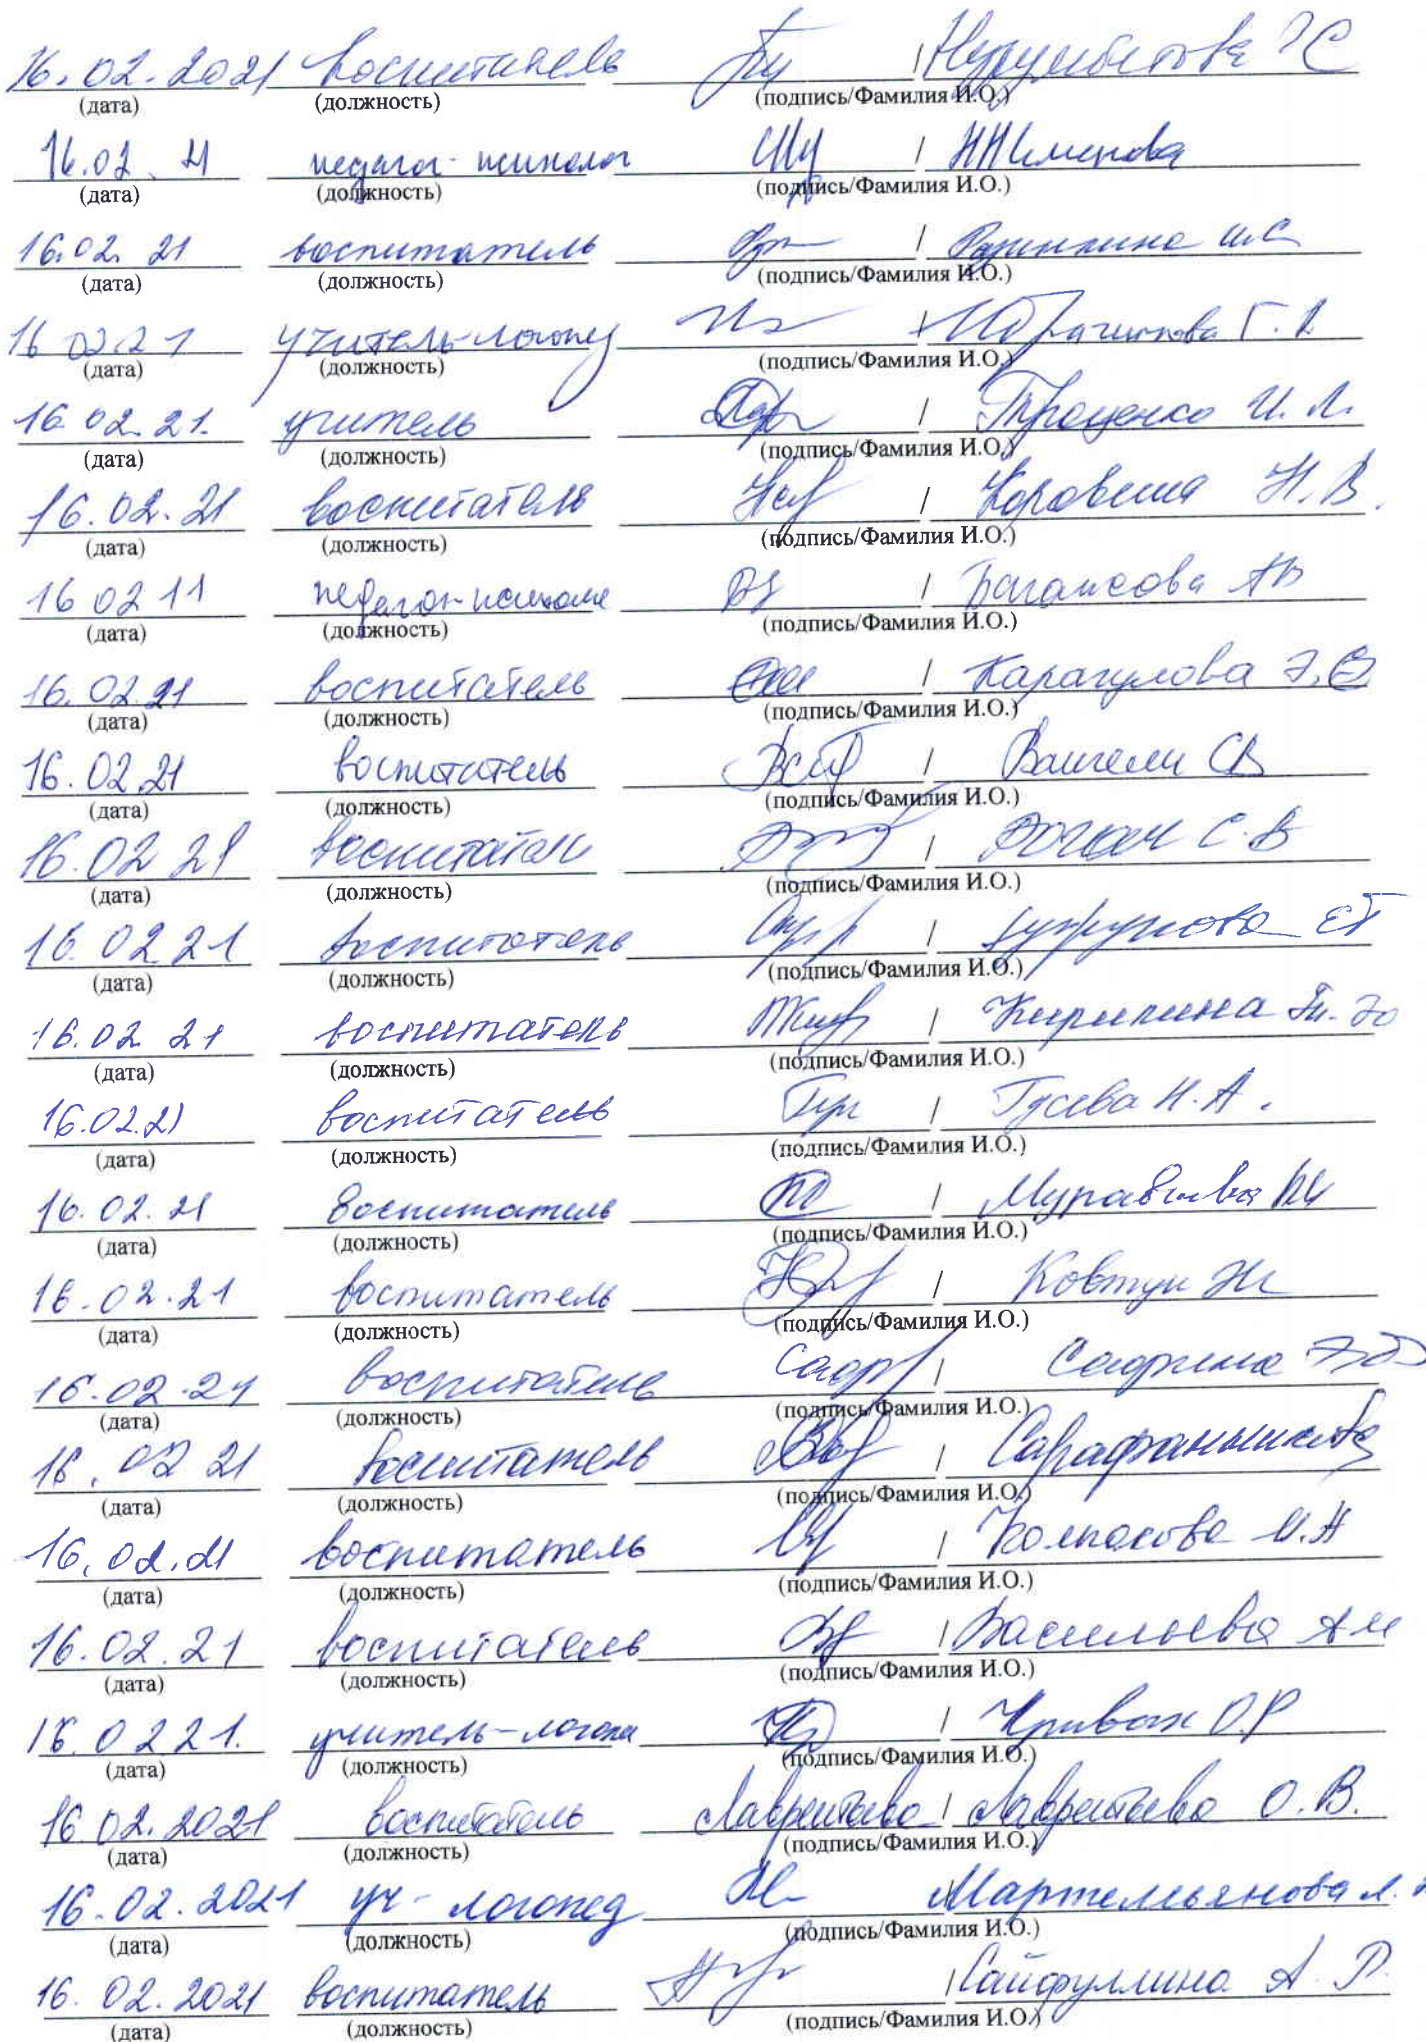 16.02.2021 воспитатель / С
(дата) (должность) (подпись/Фамилия И.О.)
16.02.21 педагог-психолог /
(дата) (должность) (подпись/Фамилия И.О.)
16.02.21 воспитатель / И.С.
(дата) (должность) (подпись/Фамилия И.О.)
16.02.21 учитель-логопед / Г.
(дата) (должность) (подпись/Фамилия И.О.)
16.02.21. учитель / Троценко И.Л.
(дата) (должность) (подпись/Фамилия И.О.)
16.02.21 воспитатель / Коровина Н.В.
(дата) (должность) (подпись/Фамилия И.О.)
16 02 педагог-психолог / АВ
(дата) (должность) (подпись/Фамилия И.О.)
16.02.21 воспитатель / Карагулова Э.
(дата) (должность) (подпись/Фамилия И.О.)
16.02.21 воспитатель / СВ
(дата) (должность) (подпись/Фамилия И.О.)
16.02 21 воспитатель / С.В
(дата) (должность) (подпись/Фамилия И.О.)
16.02.21 воспитатель /
(дата) (должность) (подпись/Фамилия И.О.)
16.02 21 воспитатель / Кирилина
(дата) (должность) (подпись/Фамилия И.О.)
16.02.21 воспитатель / Гусева Н.А.
(дата) (должность) (подпись/Фамилия И.О.)
16.02.21 воспитатель / Муравьева
(дата) (должность) (подпись/Фамилия И.О.)
16.02.21 воспитатель / Ковтун
(дата) (должность) (подпись/Фамилия И.О.)
16.02.21 воспитатель /
(дата) (должность) (подпись/Фамилия И.О.)
16.02 21 воспитатель / Сарафанникова
(дата) (должность) (подпись/Фамилия И.О.)
16.02.21 воспитатель / Колпакова И.А
(дата) (должность) (подпись/Фамилия И.О.)
16.02.21 воспитатель / Васильева АМ
(дата) (должность) (подпись/Фамилия И.О.)
16.02 21. учитель-логопед / О.Р
(дата) (должность) (подпись/Фамилия И.О.)
16.02.2021 воспитатель Лаврентьева / Лаврентьева О.В.
(дата) (должность) (подпись/Фамилия И.О.)
16.02.2021 уч-логопед Мартемьянова Л.
(дата) (должность) (подпись/Фамилия И.О.)
16.02.2021 воспитатель / Сайфуллина А.Р.
(дата) (должность) (подпись/Фамилия И.О.)